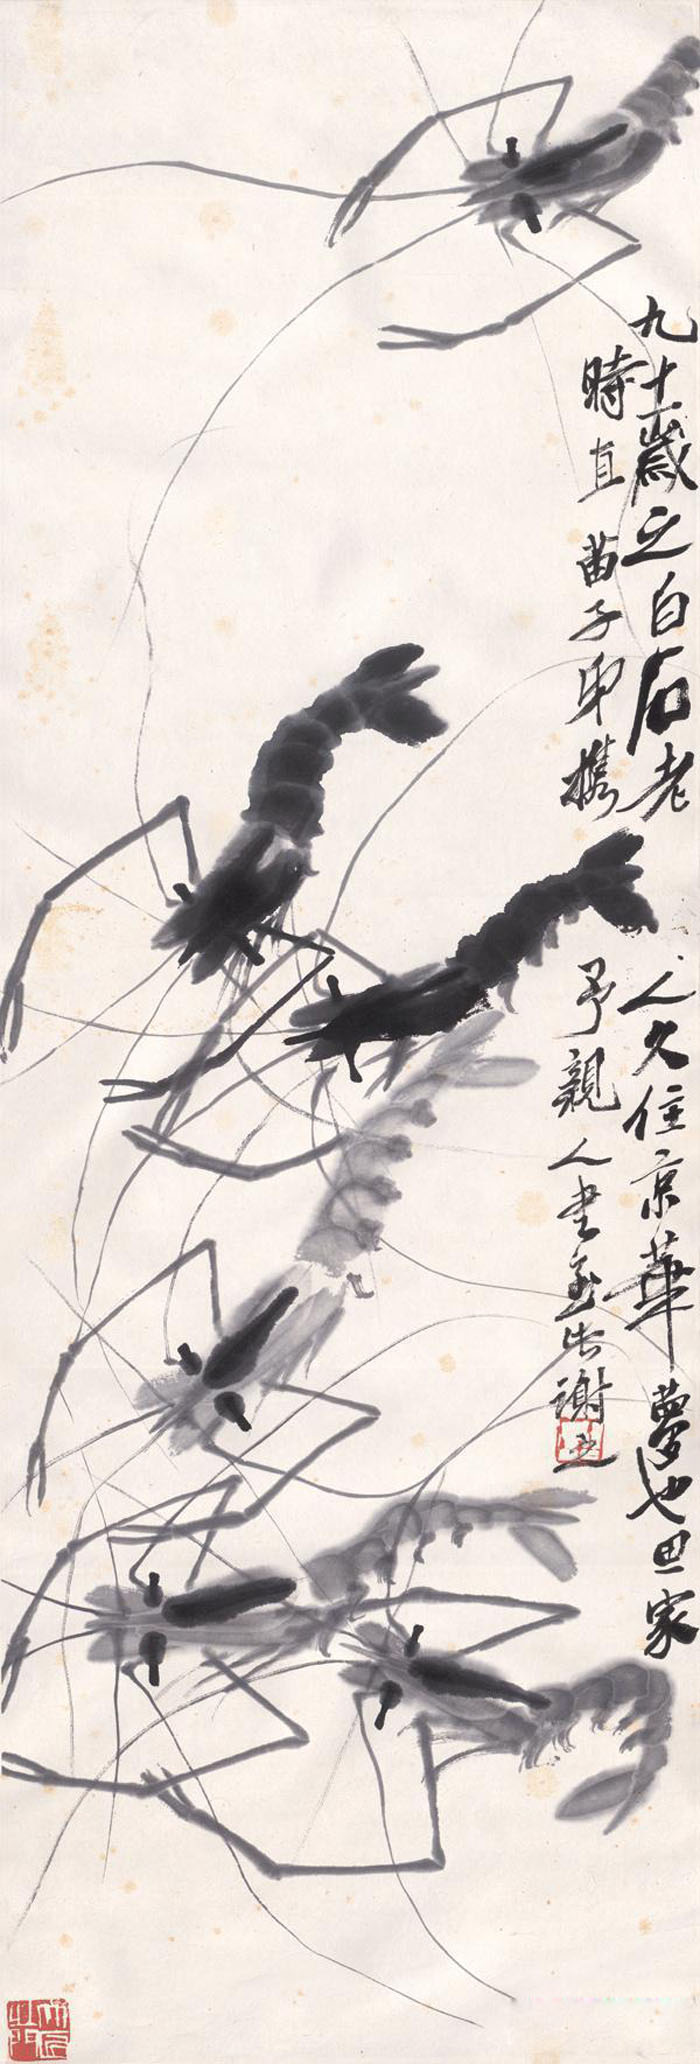 九十一歲之白石老人久住京華夢也思家
時直苗子郁携予親人書至出謝